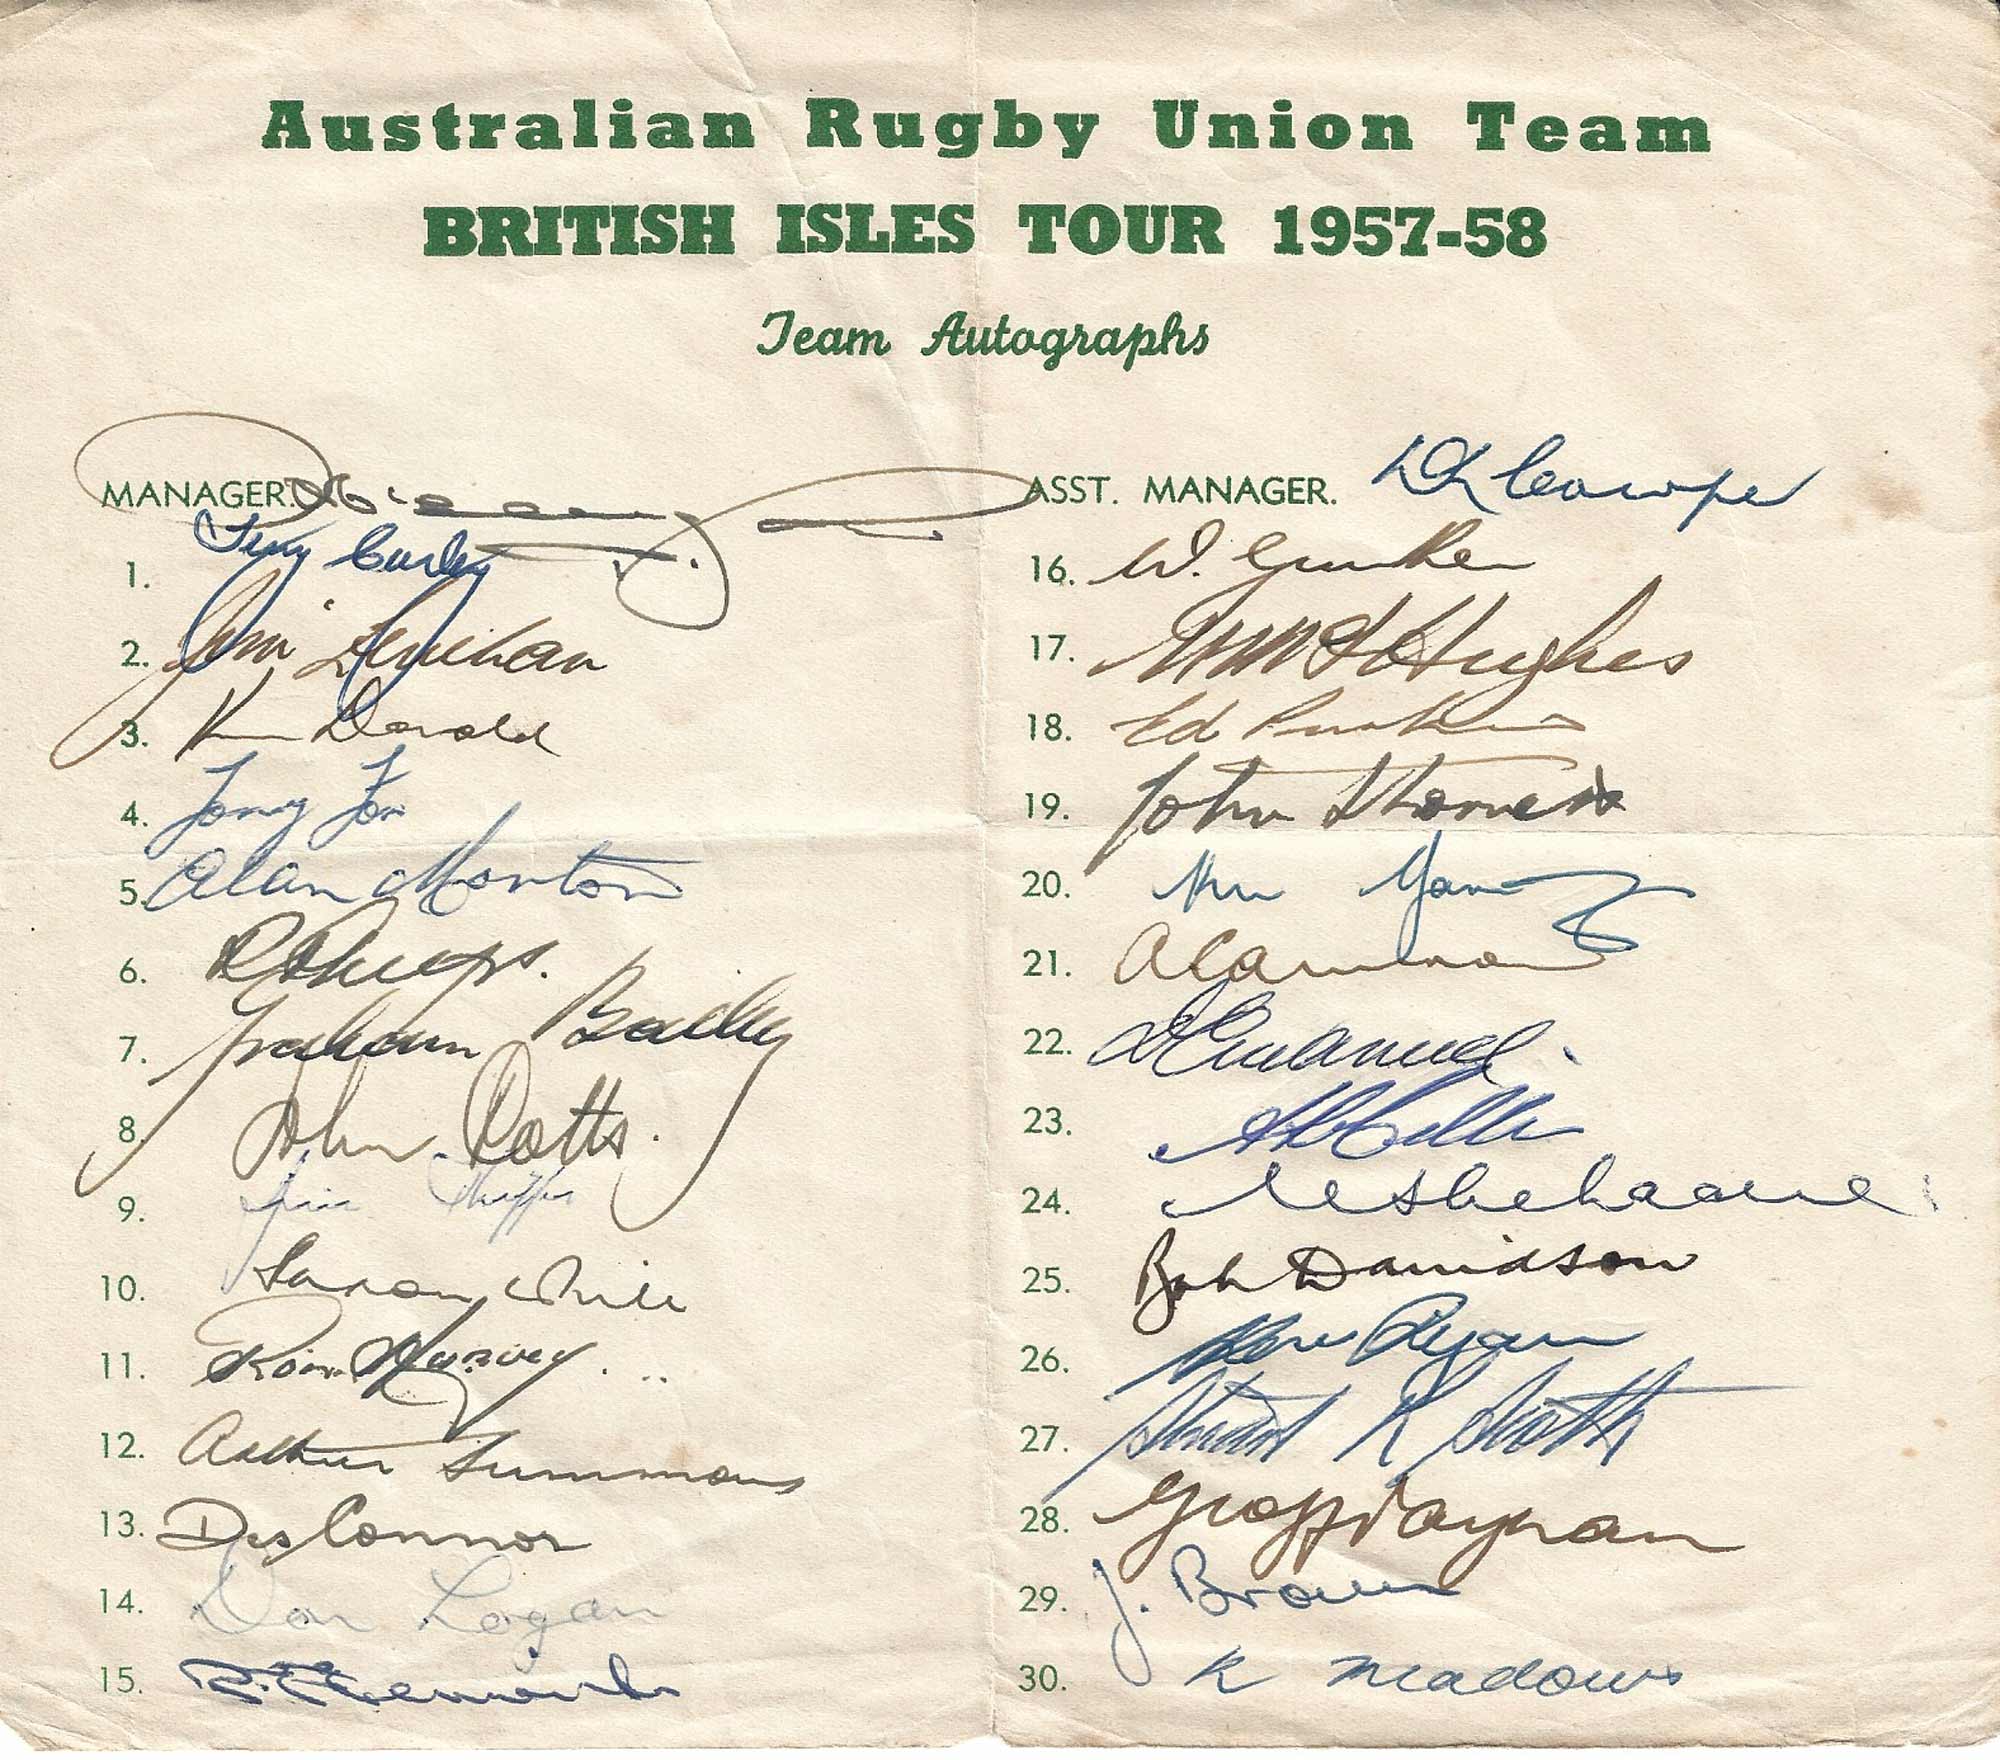 Australian Rugby Union Team
BRITISH ISLES TOUR 1957-58
Team Autographs
MANAGER.
1. Terry Curley
2. Jim Lenehan
3. Ken Donald
4. Tony Fox
5. Alan Morton
6. R Phelps.
7. Graham Bailey
8. John Potts.
9. Jim Phipps
10. Saxon White
11. Ron Harvey.
12. Arthur Summons
13. Des Connor
14. Don Logan
15.
ASST. MANAGER. D L Cowper
16. W. Gunther
17. N M Hughes
18. Ed Purkiss
19. John Thornett
20. Ken Yanz
21. A Cameron
22. D Emanuel.
23.
24. S Scotts
25. Bob Davidson
26. Kev Ryan
27. Stewart Scotts
28. Geoff Vaughan
29. J. Brown
30. K Meadows